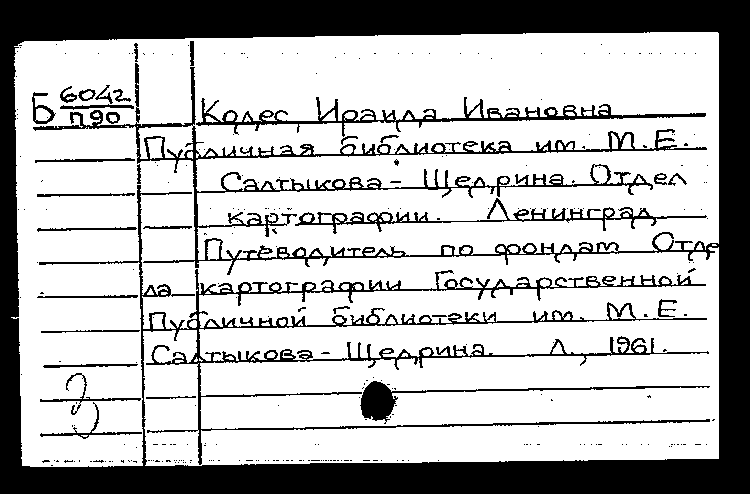 Б 6042
П90
Кодес, Ираида Ивановна
Публичная библиотека им. М.Е.
Салтыкова-Щедрина. Отдел
картографии. Ленинград
Путеводитель по фондам Отде
ла картографии Государственной
Публичной библиотеки им. М.Е.
Салтыкова-Щедрина. Л., 1961.